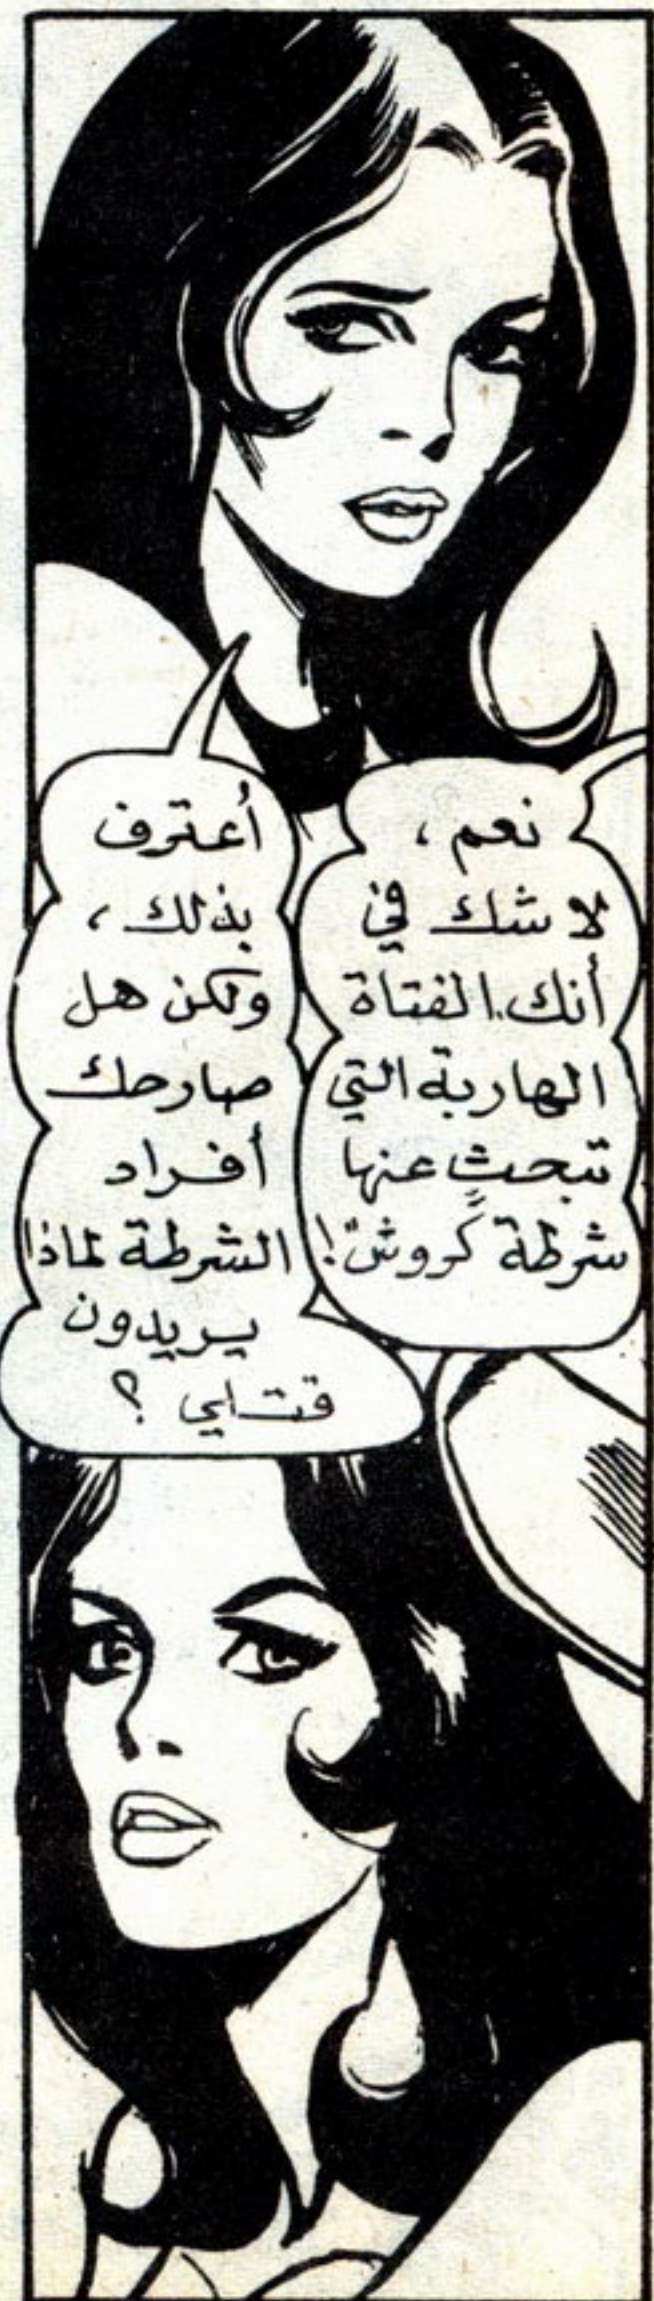 نعم ،
لا شك في
أنك الفتاة
الهاربة التي
تبحث عنها
شرطة كروش !
أعترف
بذلك ،
ولكن هل
صارحك
أفراد
الشرطة لماذا
يريدون
قتلي ؟